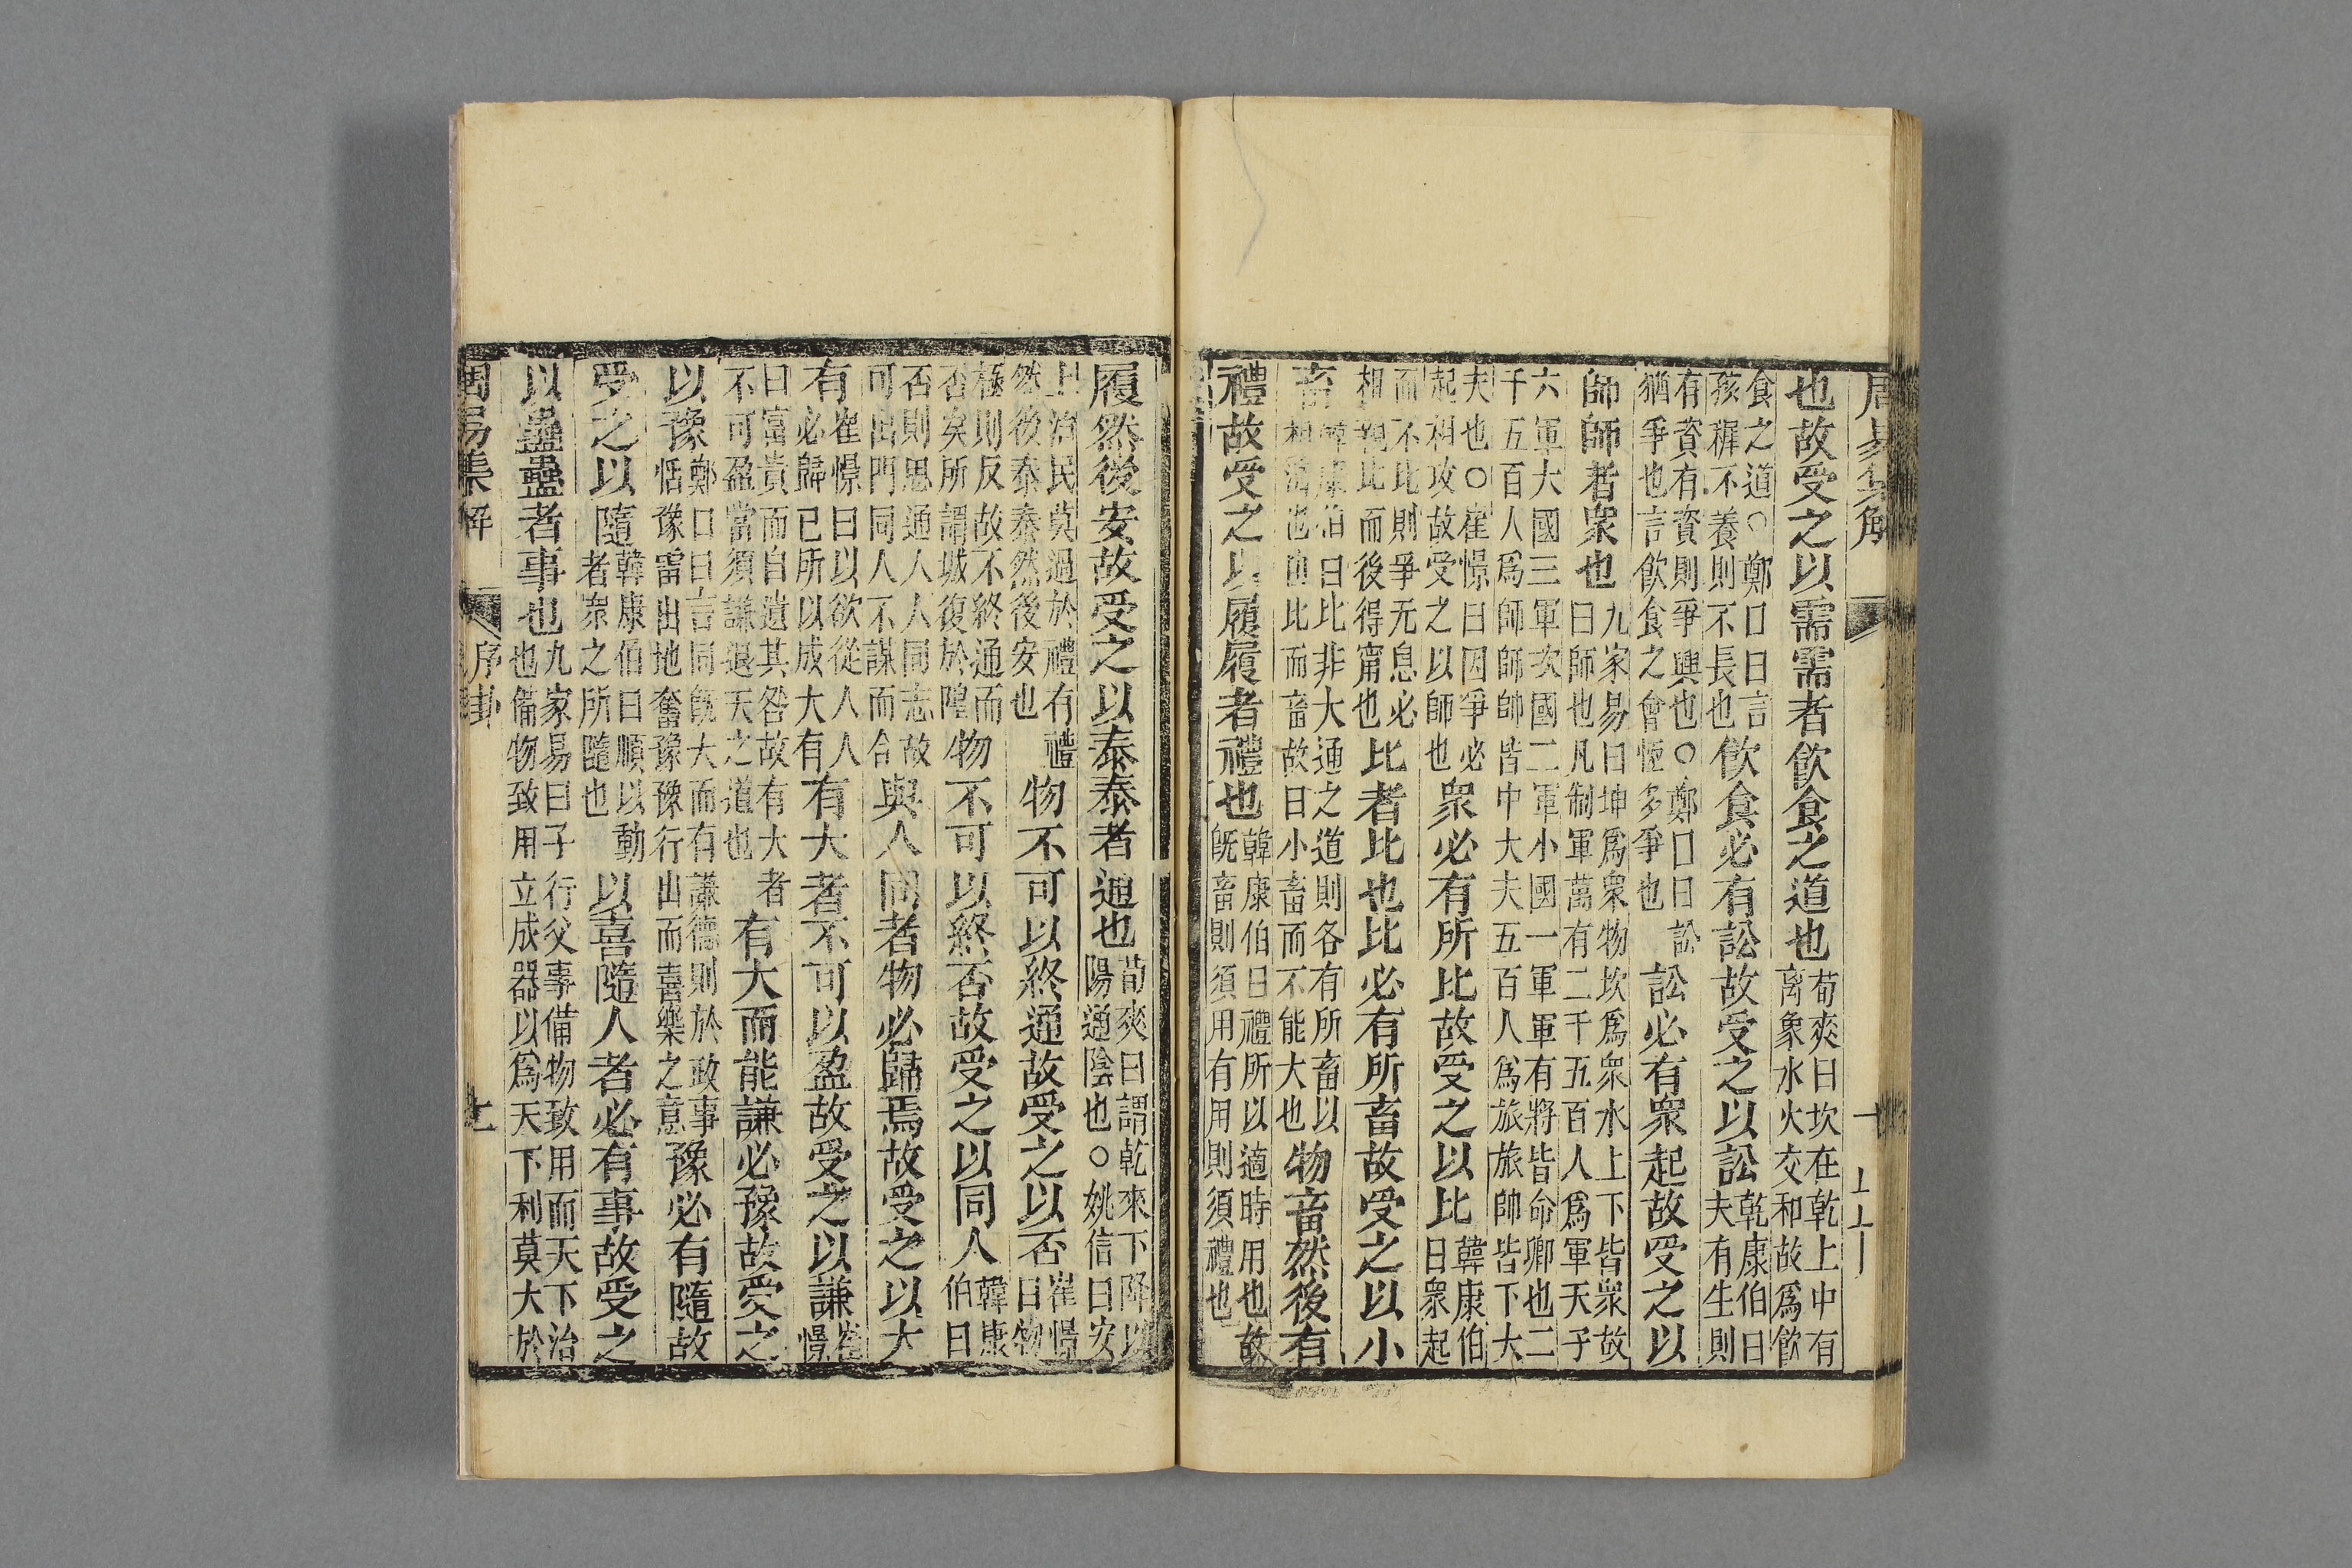 周易集解
也故受之以需需者飲食之道也荀爽曰坎在乾上中有
离象水火交和故爲飲
食之道○鄭囗曰言
孩穉不養則不長也飲食必有訟故受之以訟乾康伯曰
夫有生則
有資有資則爭興也○鄭囗曰訟
猶爭也言飲食之會恆多爭也訟必有衆起故受之以
師師者衆也九家易曰坤爲衆物坎爲衆水上下皆衆故
曰師也凡制軍萬有二千五百人爲軍天子
六軍大國三軍次國二軍小國一軍軍有將皆命卿也二
千五百人爲師師帥皆中大夫五百人爲旅旅帥皆下大
夫也○崔憬曰因爭必
起相攻故受之以師也衆必有所比故受之以比韓康伯
曰衆起
而不比則爭无息必
相親比而後得甯也比者比也比必有所畜故受之以小
畜韓康伯曰比非大通之道則各有所畜以
相濟也由比而畜故曰小畜而不能大也物畜然後有
禮故受之以履履者禮也韓康伯曰禮所以適時用也故
旣畜則須用有用則須禮也
履然後安故受之以泰泰者通也荀爽曰謂乾來下降以
陽通陰也○姚信曰安
上治民莫過於禮有禮
然後泰泰然後安也物不可以終通故受之以否崔憬
曰物
極則反故不終通而
否矣所謂城復於隍物不可以終否故受之以同人韓康
伯曰
否則思通人人同志故
可出門同人不謀而合與人同者物必歸焉故受之以大
有崔憬曰以欲從人人
必歸己所以成大有有大者不可以盈故受之以謙崔
憬
曰富貴而自遺其咎故有大者
不可盈當須謙退天之道也有大而能謙必豫故受之
以豫鄭囗曰言同旣大而有謙德則於政事
恬豫雷出地奮豫豫行出而喜樂之意豫必有隨故
受之以隨韓康伯曰順以動
者衆之所隨也以喜隨人者必有事故受之
以蠱蠱者事也九家易曰子行父事備物致用而天下治
也備物致用立成器以爲天下利莫大於
周易集解 序卦 七